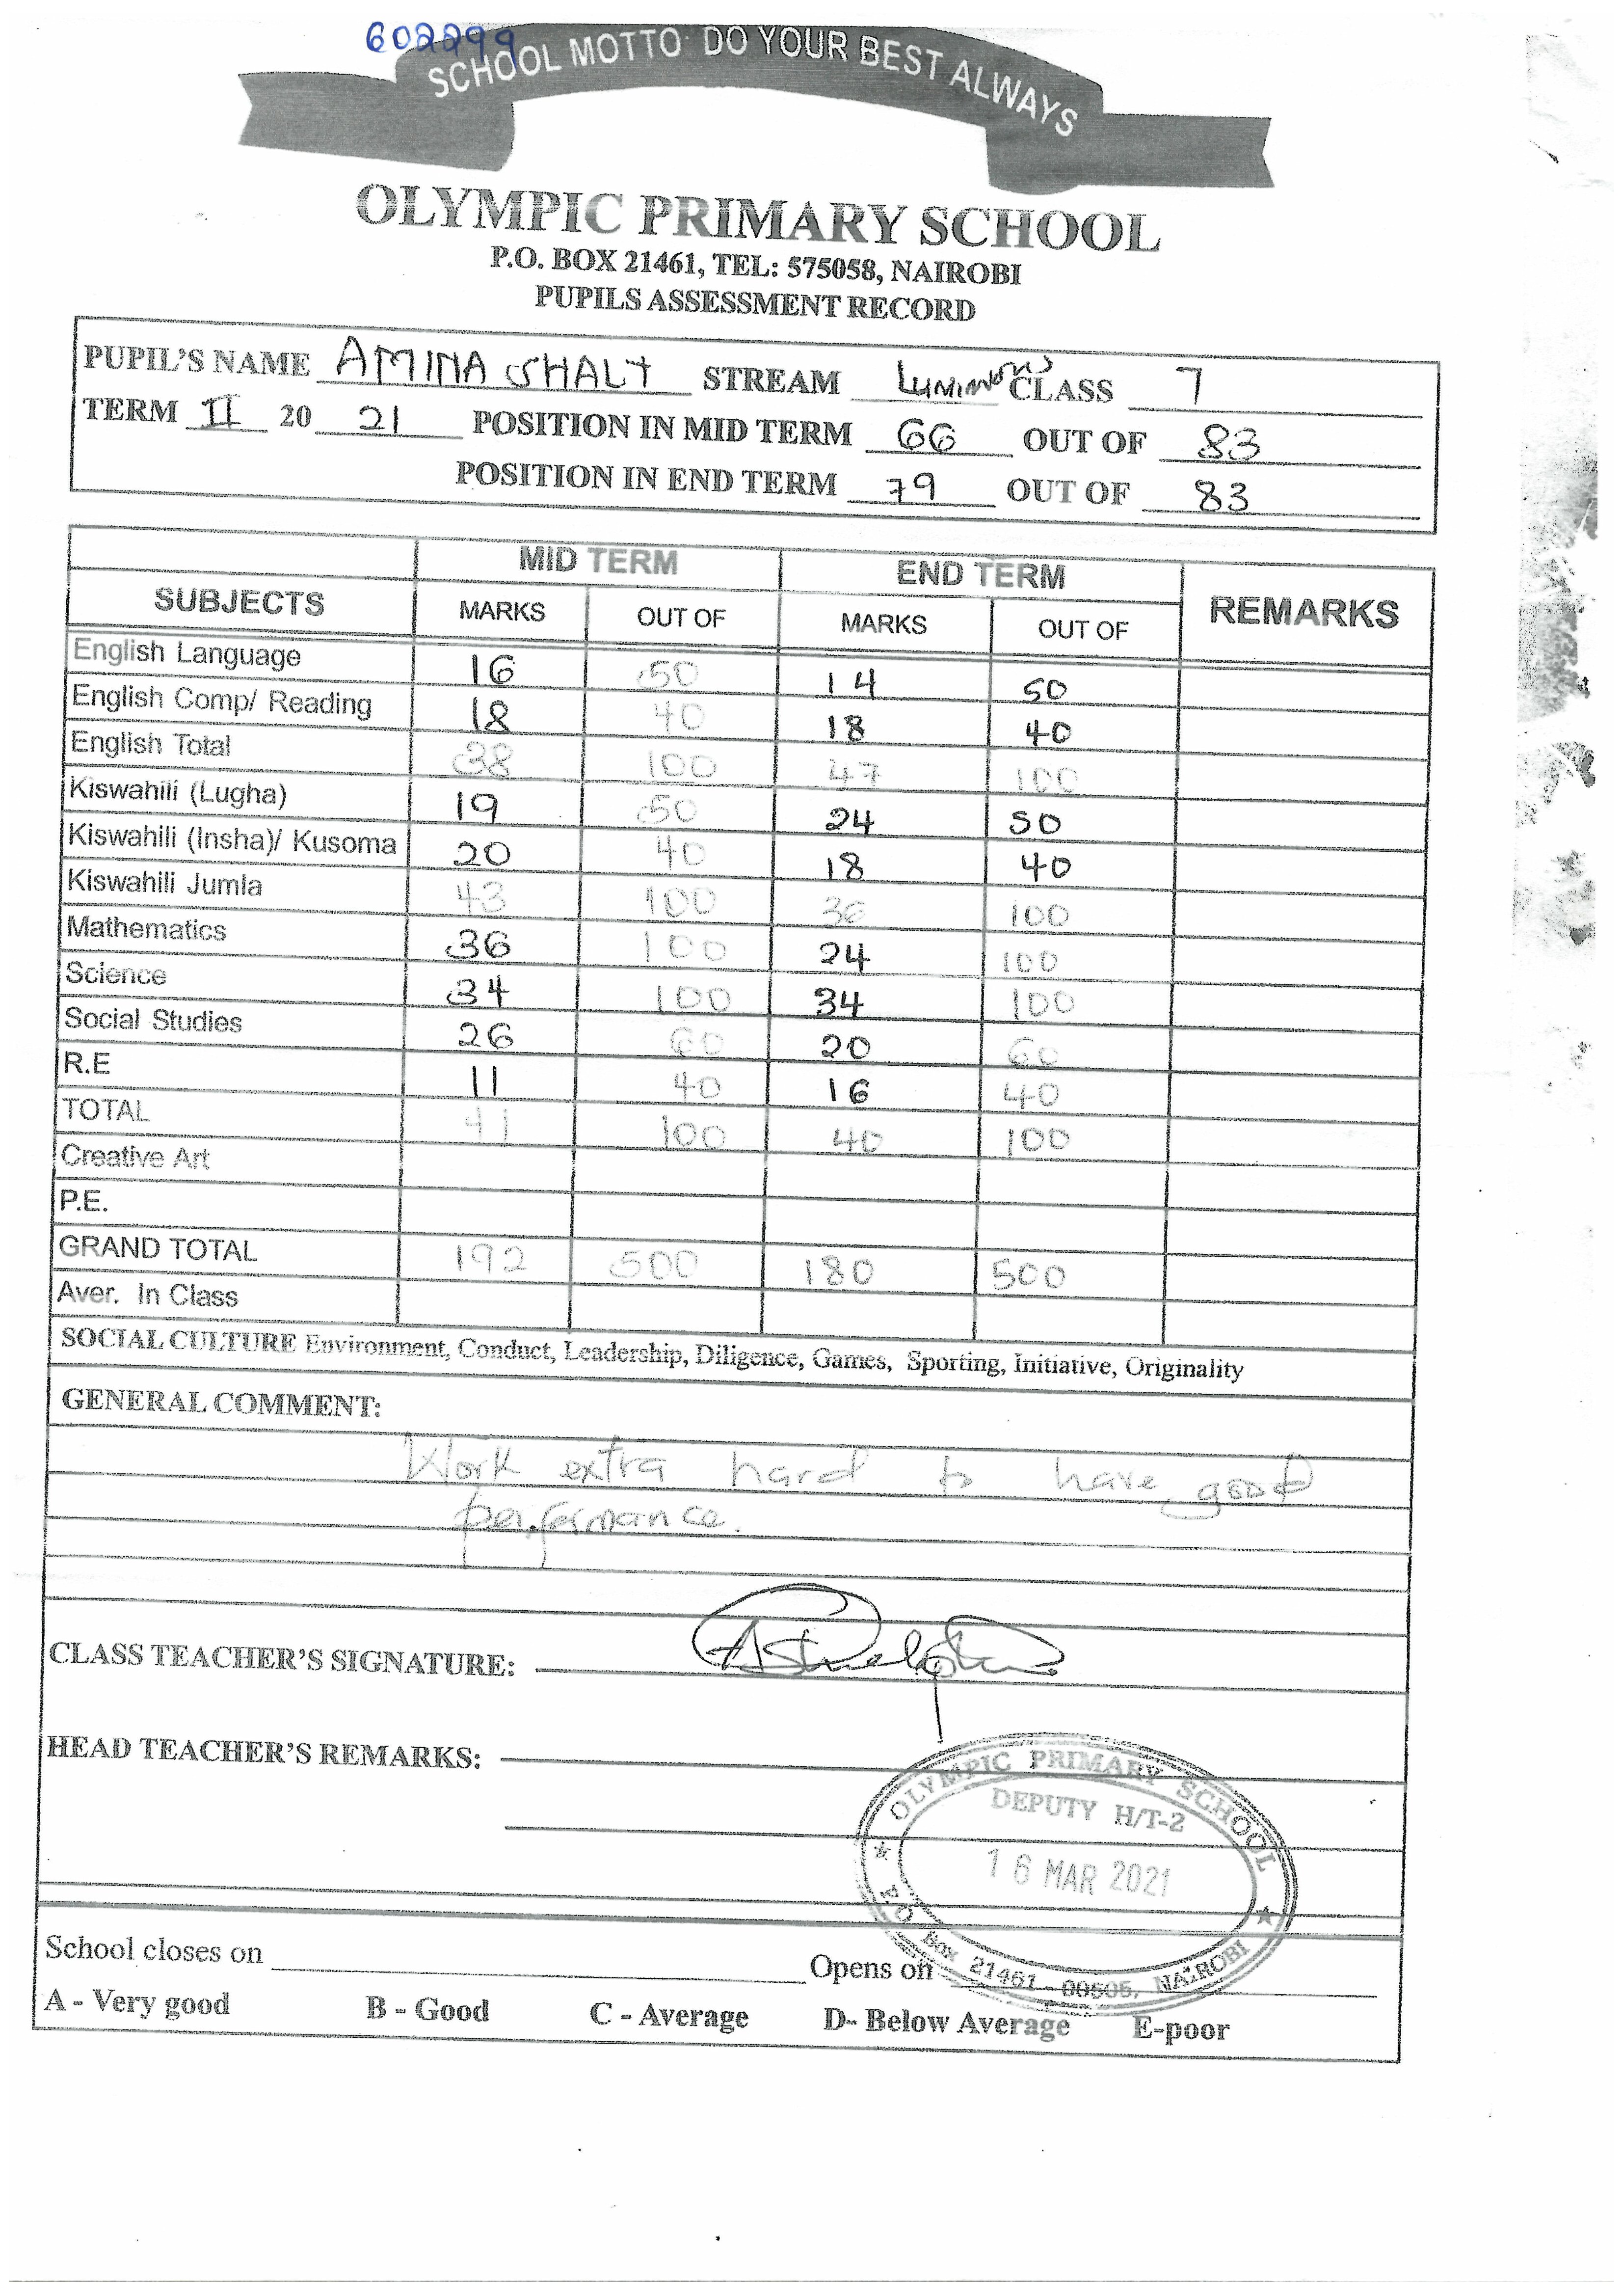 602299
SCHOOL MOTTO DO YOUR BEST ALWAYS
OLYMPIC PRIMARY SCHOOL
P.O. BOX 21461, TEL: 575058, NAIROBI
PUPILS ASSESSMENT RECORD
PUPIL'S NAME AMINA SHALY STREAM Luminous CLASS 7
TERM II 20 21 POSITION IN MID TERM 66 OUT OF 83
POSITION IN END TERM 79 OUT OF 83
MID TERM END TERM
SUBJECTS MARKS OUT OF MARKS OUT OF REMARKS
English Language 16 50 14 50
English Comp/ Reading 18 40 18 40
English Total 38 100 47 100
Kiswahili (Lugha) 19 50 24 50
Kiswahili (Insha)/ Kusoma 20 40 18 40
Kiswahili Jumla 43 100 36 100
Mathematics 36 100 24 100
Science 34 100 34 100
Social Studies 26 60 20 60
R.E 11 40 16 40
TOTAL 41 100 40 100
Creative Art
P.E.
GRAND TOTAL 192 500 180 500
Aver. In Class
SOCIAL CULTURE Environment, Conduct, Leadership, Diligence, Games, Sporting, Initiative, Originality
GENERAL COMMENT:
Work extra hard to have good
performance.
CLASS TEACHER'S SIGNATURE:
HEAD TEACHER'S REMARKS:
OLYMPIC PRIMARY SCHOOL
DEPUTY H/T-2
16 MAR 2021
P.O. Box 21461 - 00505, NAIROBI
School closes on Opens on
A - Very good B - Good C - Average D- Below Average E-poor